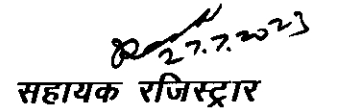 27.7.2023
सहायक रजिस्ट्रार